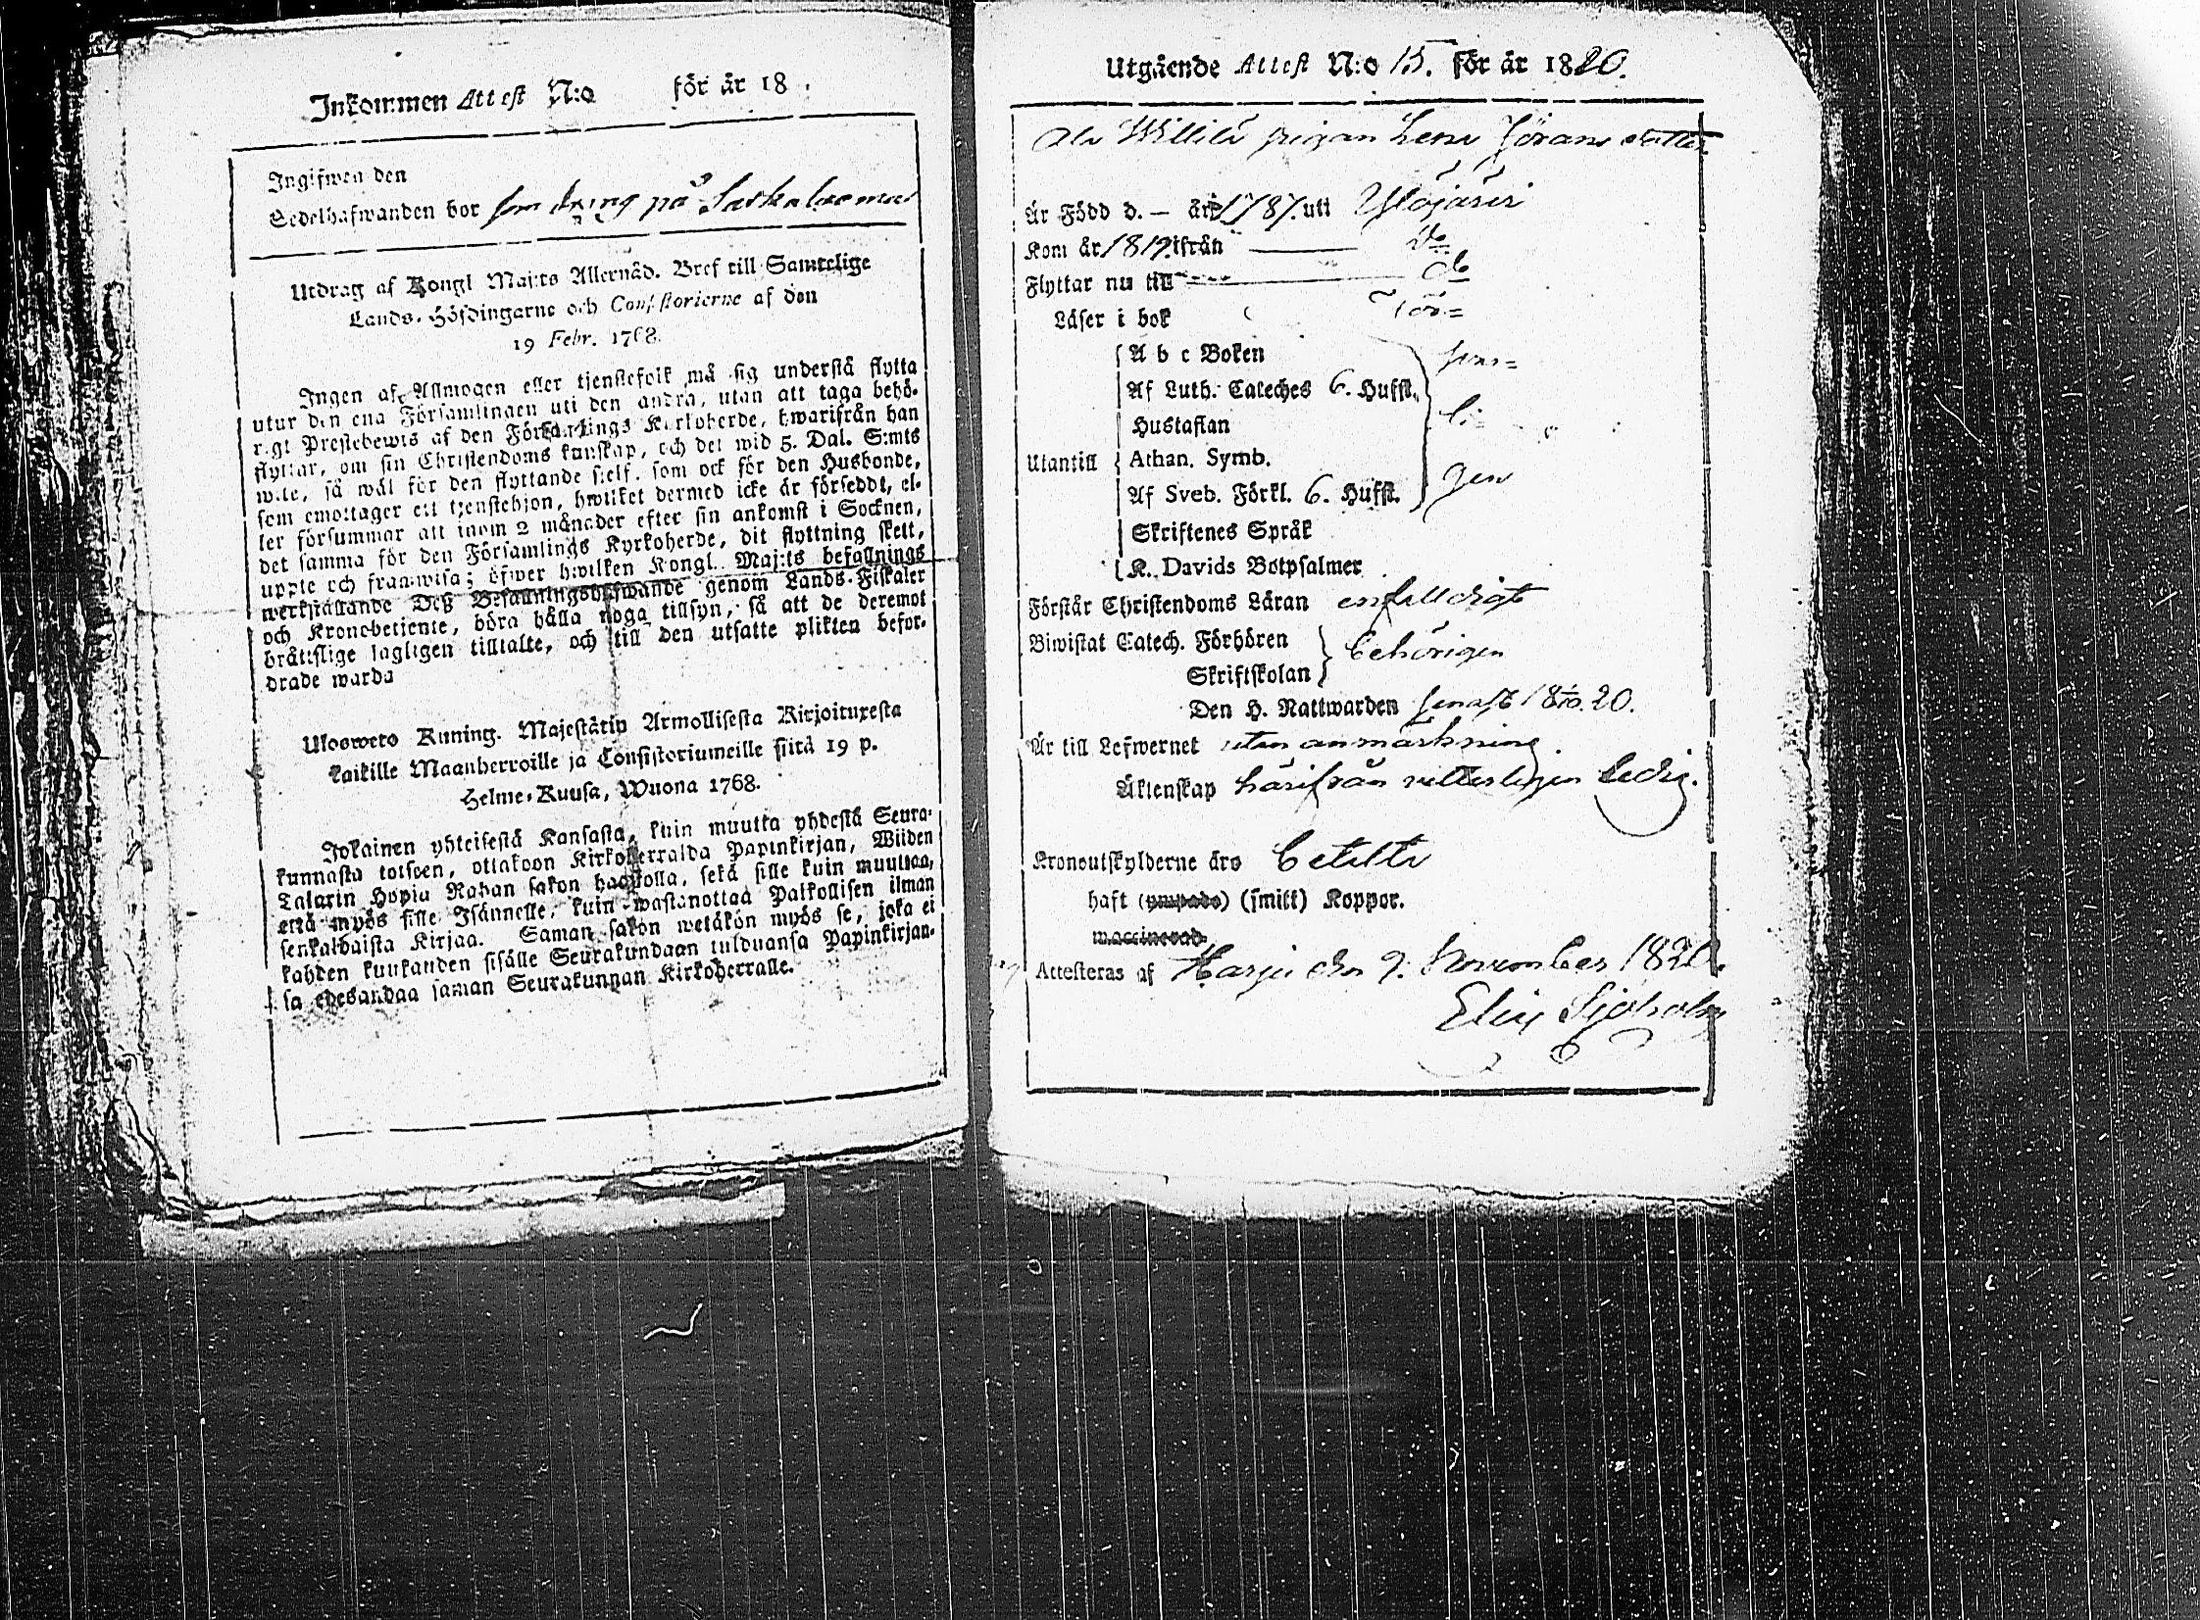 Inkommen Attest N:o för år 18 .
Ingifwen den
Sedelhafwanden bor som dräng på
Utdrag af Kongl Maj:ts Allernåd. Bref till Samtelige
Lands-Höfdingarne och Consistorierne af den
19 Febr. 1768.
Ingen af Allmogen eller tjenstefolk må sig understå flytta
utur den ena Församlingen uti den andra, utan att taga behö-
rigt Prestebewis af den Församlings Kyrkoherde, hwarifrån han
flyttar, om sin Christendoms kunskap, och det wid 5. Dal. S:mts
wite, så wäl för den flyttande sjelf, som ock för den Husbonde,
som emottager ett tjenstehjon, hwilket dermed icke är försedt, el-
ler försummar att inom 2 månader efter sin ankomst i Socknen,
det samma för den Församlings Kyrkoherde, dit flyttning skett,
uppte och framwisa; öfwer hwilken Kongl. Maj:ts befallnings
werkställande Deß Befallningshafwande genom Lands-Fiskaler
och Kronobetjente, böra hålla noga tillsyn, så att de deremot
bråttslige lagligen tilltalte, och till den utsatte plikten befor-
drade warda
Ulosweto Kuning. Majestätin Armollisesta Kirjoituxesta
kaikille Maanherroille ja Consistoriumeille siitä 19 p.
Helme-Kuusa, Wuona 1768.
Jokainen yhteisestä Kansasta, kuin muutta yhdestä Seura-
kunnasta toiseen, ottakoon Kirkoherralda Papinkirjan, Wiiden
Talarin Hopia Rahan sakon haastolla, sekä sille kuin muuttaa,
että myös sille Isännelle, kuin wastanottaa Palkollisen ilman
senkaltaista Kirjaa. Saman sakon wetäkön myös se, joka ei
kahden kuukauden sisälle Seurakundaan tulduansa Papinkirjan-
sa edesandaa saman Seurakunnan Kirkoherralle.
Utgående Attest N:o 15. för år 1820.
Ala Willilä pigan Lena Jörans dotter
Är Född d. — år 1787. uti Ylöjärvi
Kom år 1819. ifrån — do
Flyttar nu till — do
Läser i bok För=
A b c Boken
svar=
Af Luth. Cateches 6. Hufst.
Hustaflan
li=
Utantill Athan. Symb.
Af Sveb. Förkl. 6. Hufst.
gen
Skriftenes Språk
K. Davids Botpsalmer
Förstår Christendoms Läran enfalldigt
Biwistat Catech. Förhören
behörigen
Skriftskolan
Den H. Nattwarden senast 18/10. 20.
Är till Lefwernet utan anmärkning
Äktenskap härifrån vetterligen ledig.
Kronoutskylderne äro betalta
haft (ympade) (smitt) Koppor.
waccinerad
Attesteras af Harju den 9. November 1820.
Elis Sjöholm